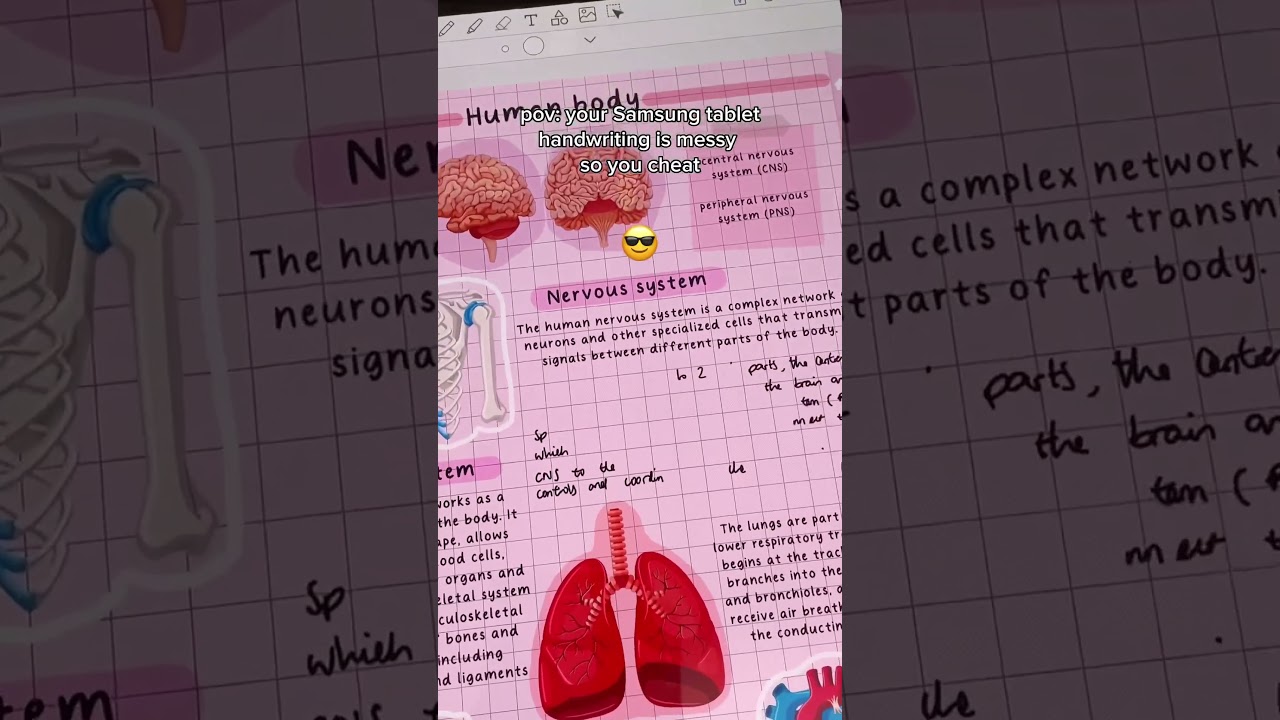 Human body
pov: your Samsung tablet
handwriting is messy
so you cheat
central nervous
system (CNS)
peripheral nervous
system (PNS)
Nervous system
The human nervous system is a complex network
neurons and other specialized cells that transm
signals between different parts of the body.
to 2 parts, the
the brain
Sp
which
CNS to the
controls and coordin
the
tem
works as a
the body. It
ape, allows
ood cells,
organs and
eletal system
culoskeletal
bones and
including
nd ligaments
The lungs are part
lower respiratory tra
begins at the trac
branches into the
and bronchioles,
receive air breat
the conductin
Ner
The hum
neurons
signa
s a complex network
ed cells that transm
t parts of the body.
parts, the
the brain
Sp
which
tem
the